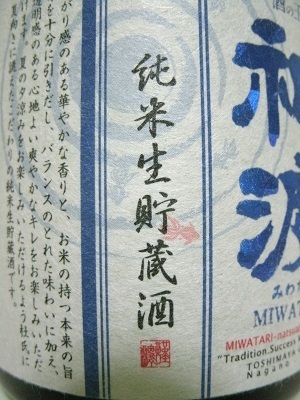 酒の
神渡
みわた
MIWAT
MIWATARI-natsu
"Tradition.Success
TOSHIMAYA
Nagano
純米生貯蔵酒
がり感のある華やかな香りと、お米の持つ本来の旨
を十分に引きだし、バランスのとれた味わいに加え、
透明感のある心地よい爽やかなキレをお楽しみいただ
けます。夏の夕涼みをお楽しみいただけるよう杜氏に
夏向きに読えたこだわりの純米生貯蔵酒です。